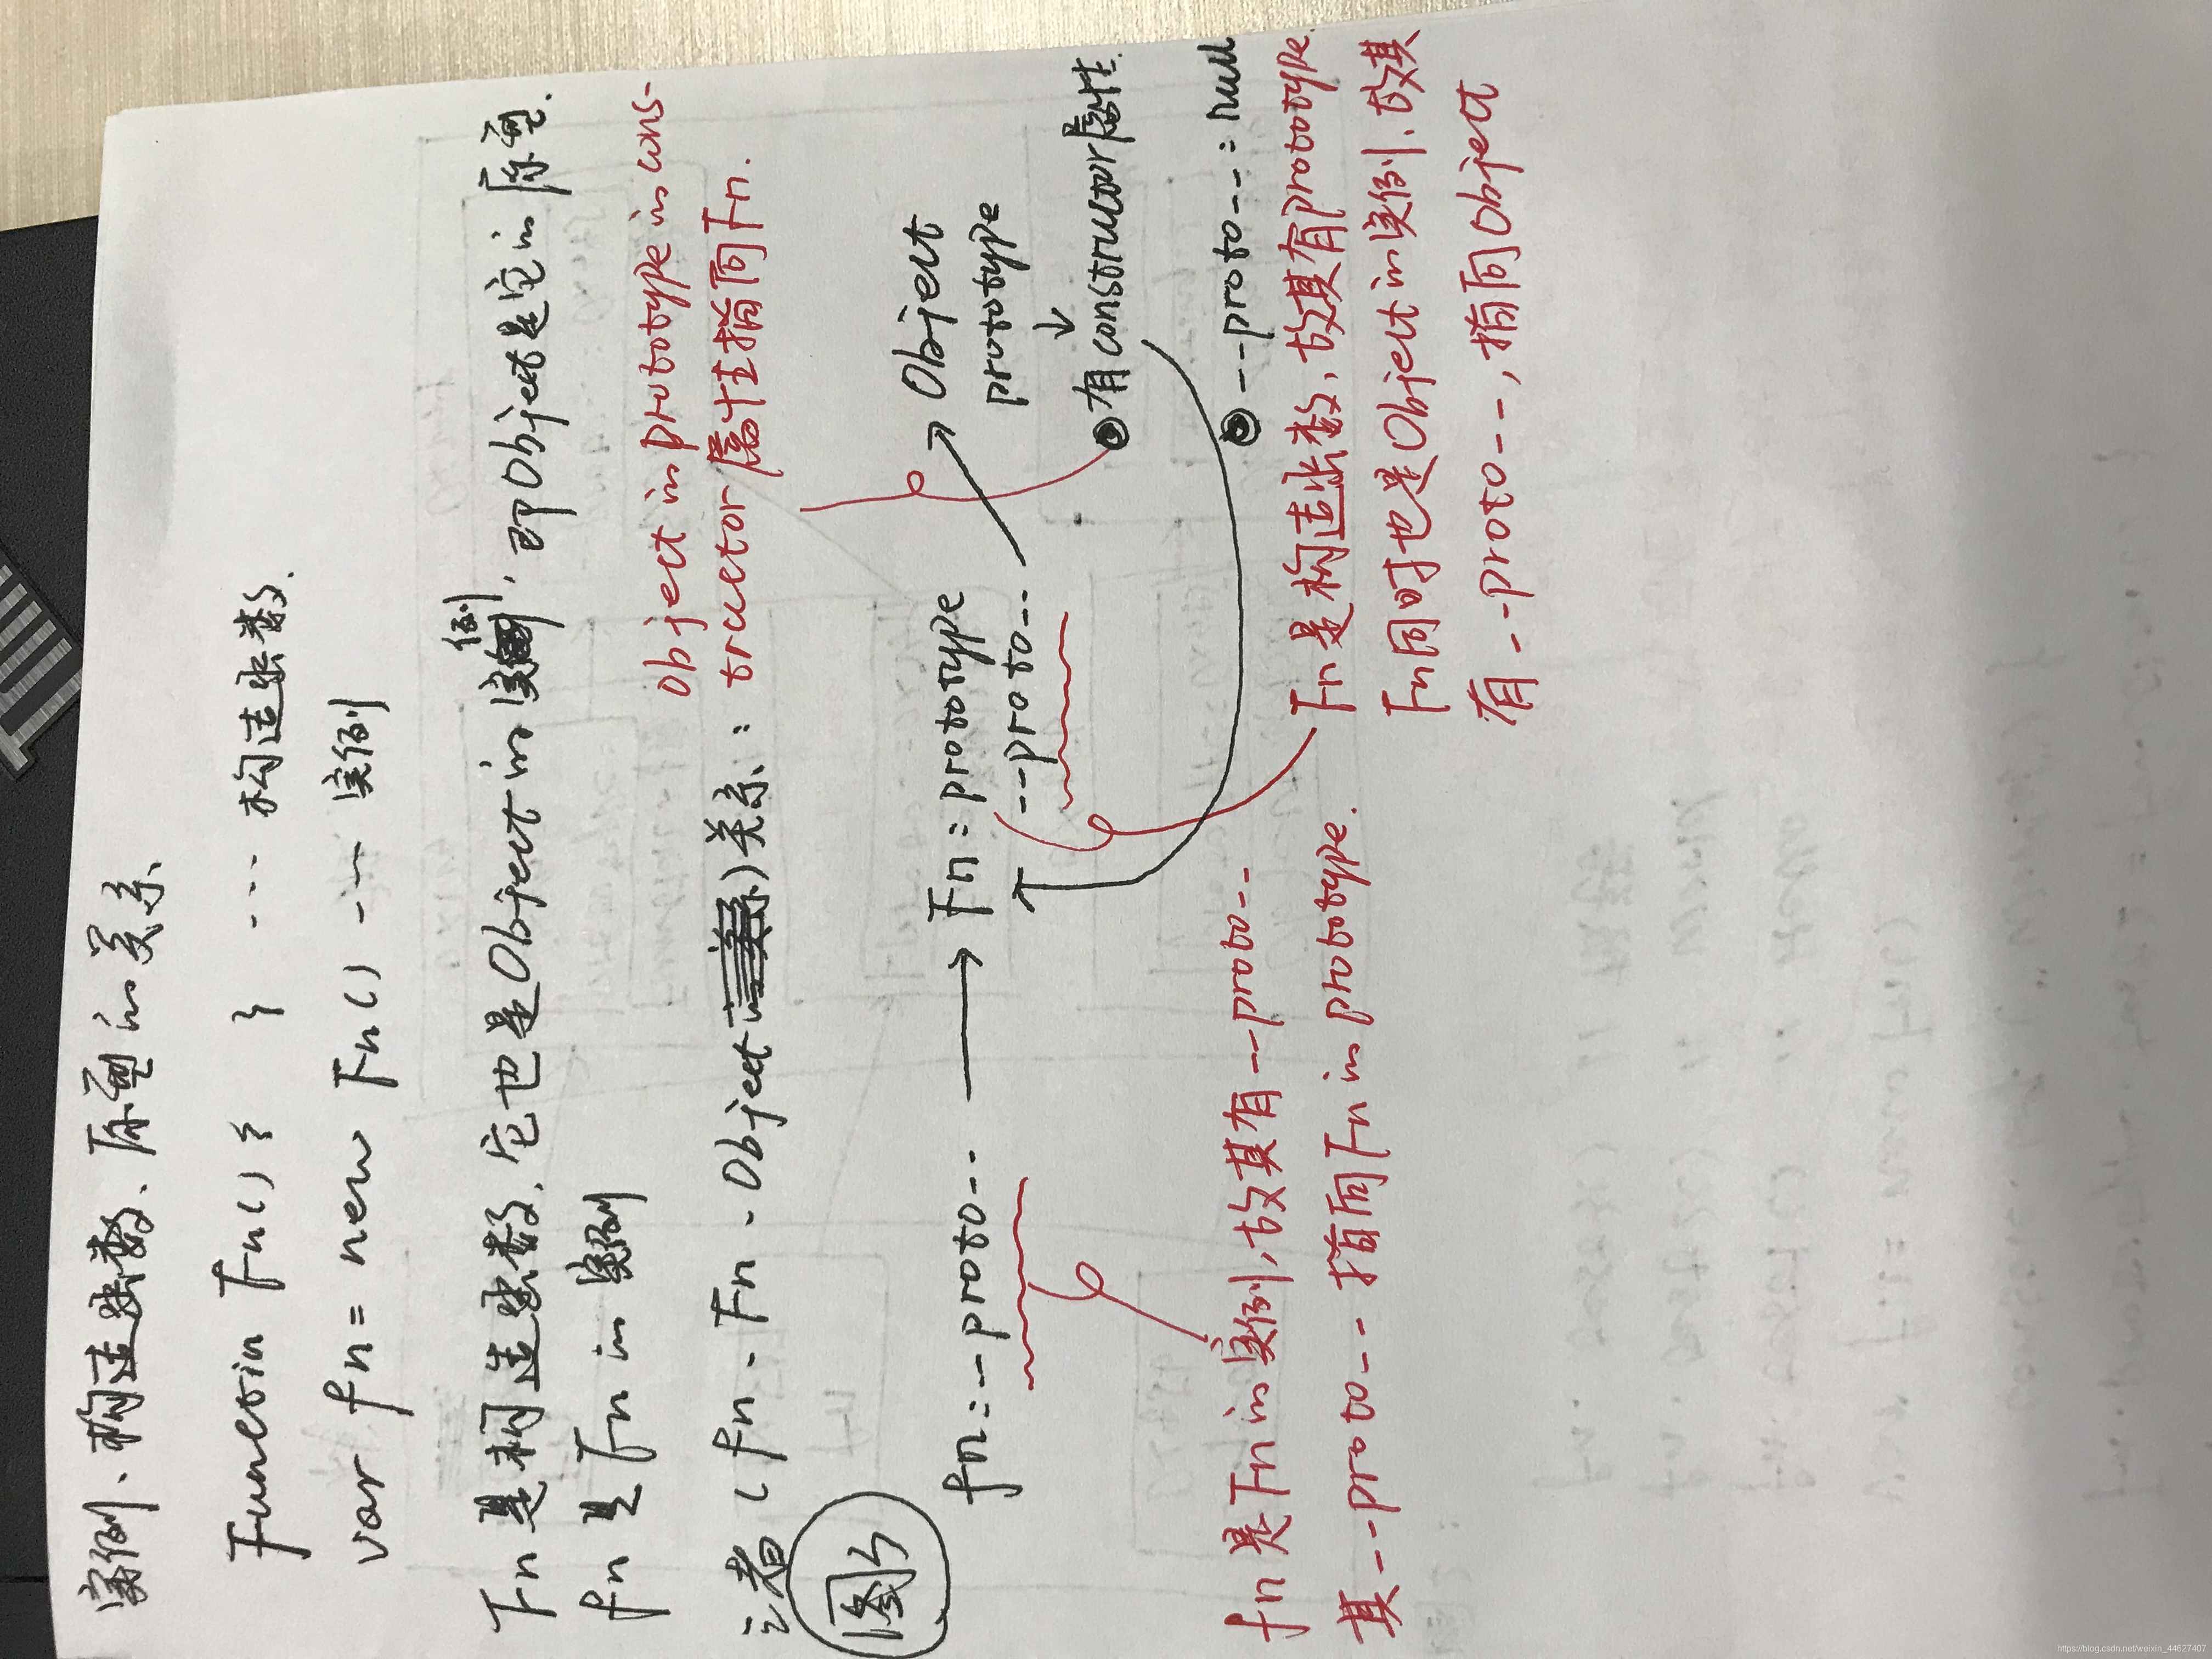 实例、构造函数、原型的关系
Function Fn() { } --- 构造函数.
var fn = new Fn() --- 实例
Fn是构造函数, 它也是Object的实例, 即Object是它的原型.
fn是Fn的实例
三者(fn - Fn - Object)关系:
Object的prototype的cons-
tructor属性指向Fn.
图3
fn = --proto-- → Fn = prototype
--proto--
Object
prototype
↓
有constructor属性.
--proto-- = null
fn是Fn的实例, 故其有--proto--
其--proto--指向Fn的prototype.
Fn是构造函数, 故其有prototype.
Fn同时也是Object的实例, 故其
有--proto--, 指向Object
https://blog.csdn.net/weixin_44627407